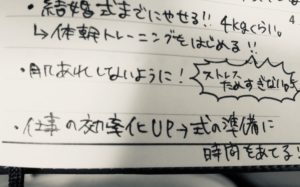 ・結婚式までにやせる!! 4kgくらい。
↳体幹トレーニングをはじめる!!
・肌あれしないように!
ストレス
ためすぎない。
・仕事の効率化UP→式の準備に
時間をあてる!